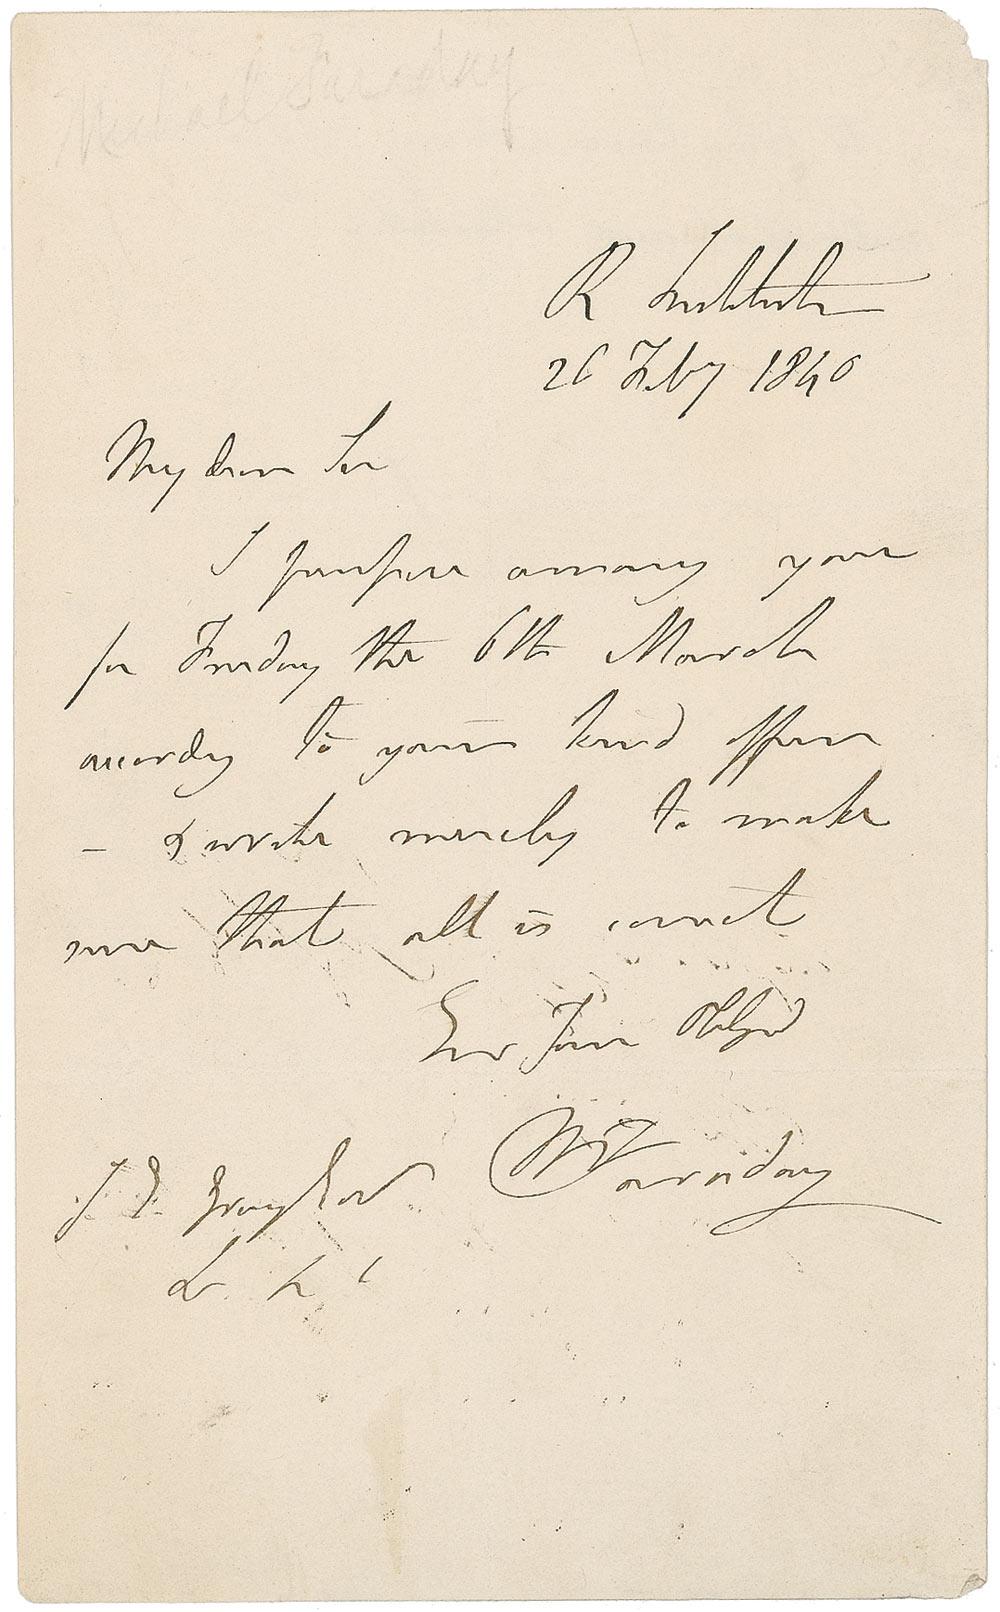 Michael Faraday
R Institution
26 Feby 1840
My dear Sir
I propose among your
for Friday the 6th March
according to your kind offer
– & write merely to make
sure that all is correct
Ever Your Obliged
M Faraday
J. E.